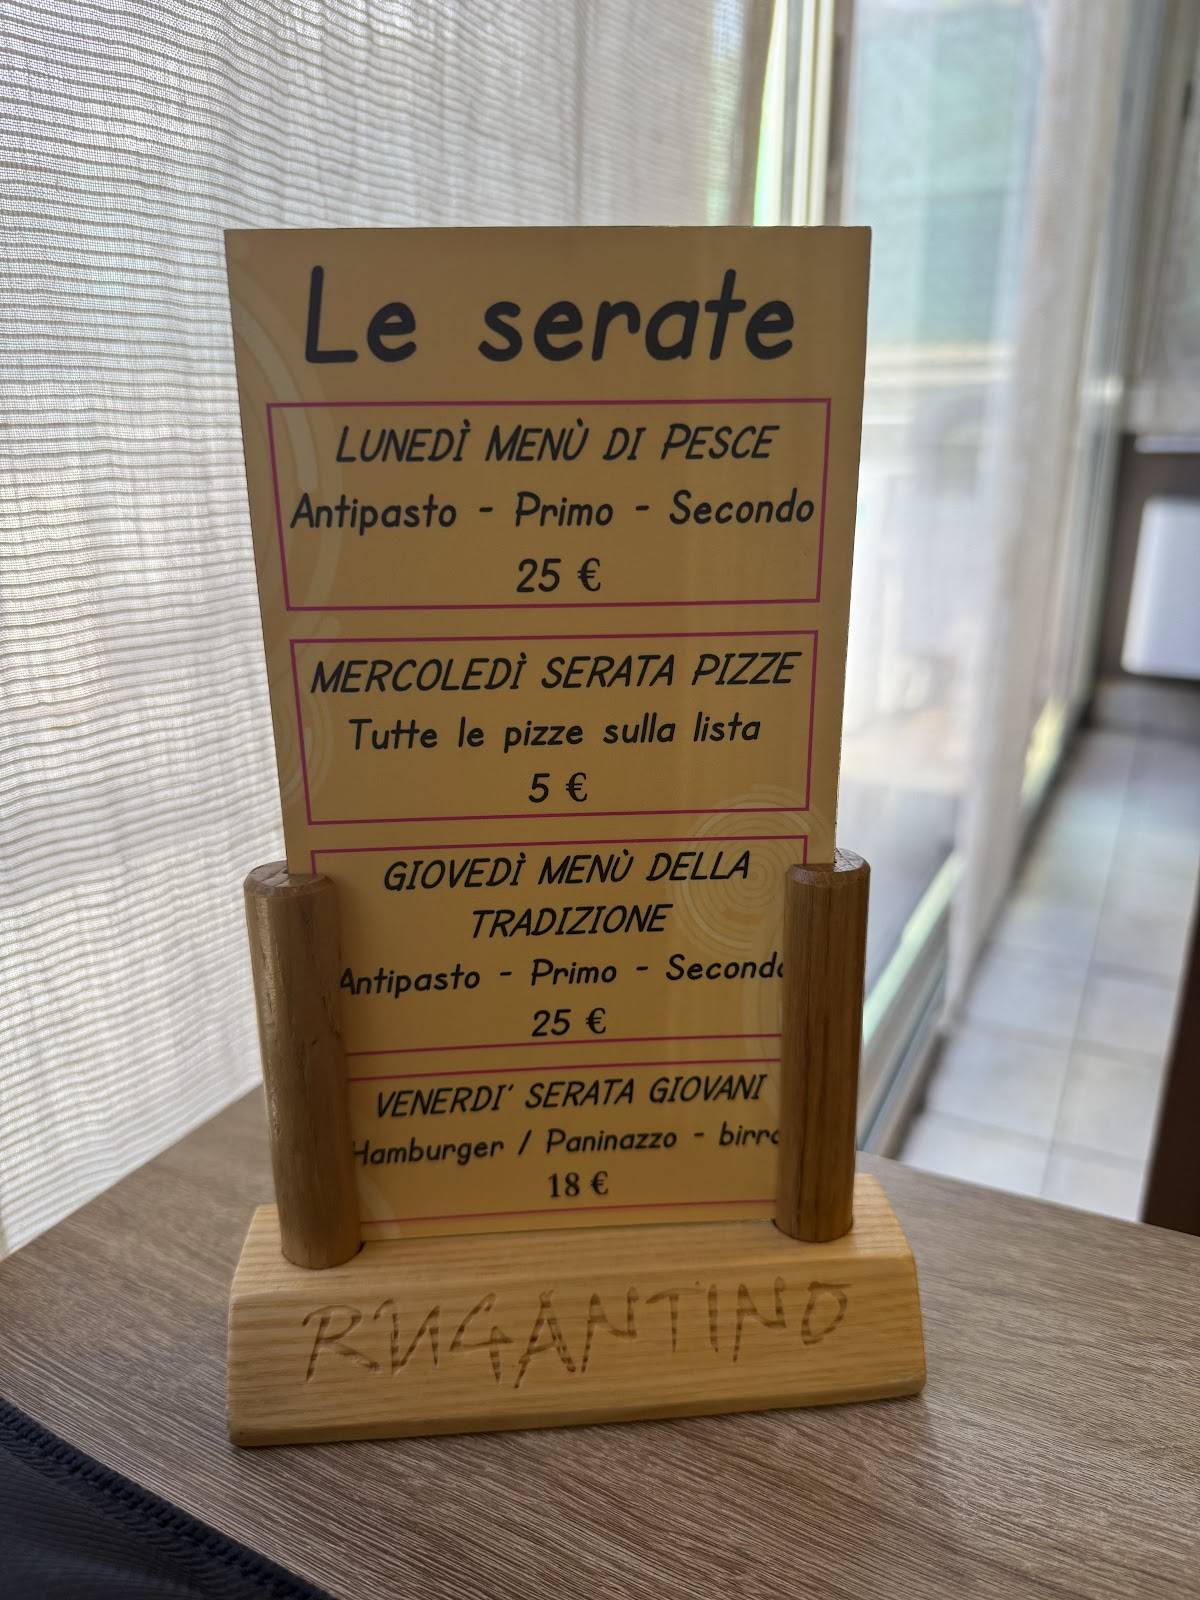 Le serate
LUNEDÌ MENÙ DI PESCE
Antipasto - Primo - Secondo
25 €
MERCOLEDÌ SERATA PIZZE
Tutte le pizze sulla lista
5 €
GIOVEDÌ MENÙ DELLA
TRADIZIONE
Antipasto - Primo - Secondo
25 €
VENERDI' SERATA GIOVANI
Hamburger / Paninazzo - birra
18 €
RUGANTINO